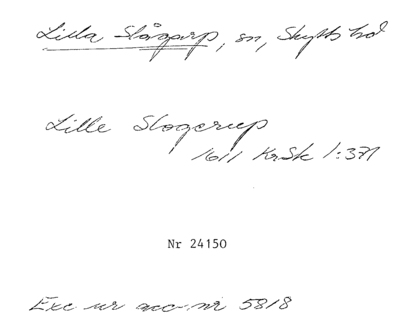 Lilla Slågarp, sn, Skytts hd
Lille Slogerup
1611 KrSk 1:371
Nr 24150
Exc ur acc. nr 5818